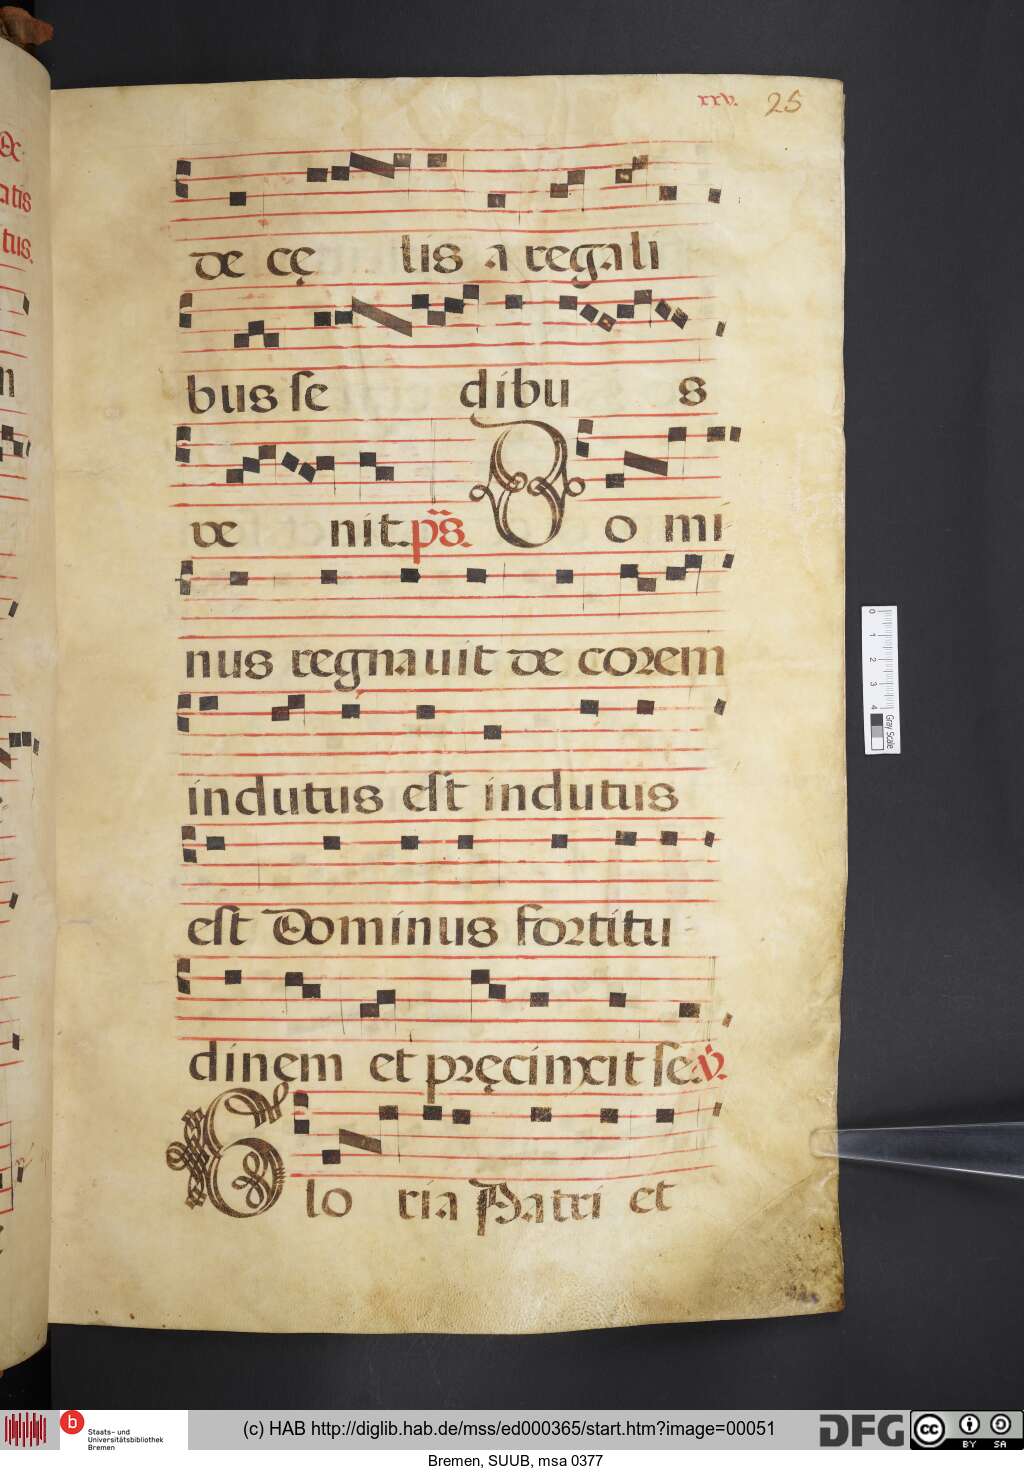 xxv. 25
de cę lis a regali
bus ſe dibu s
ve nit. pſ. D o mi
nus regnauit de corem
indutus eſt indutus
eſt Dominus fortitu
dinem et pręcinxit ſe. V.
G lo ria Patri et
atis
tus.
0 1 2 3 4 Gray Scale
b Staats- und Universitätsbibliothek Bremen
(c) HAB http://diglib.hab.de/mss/ed000365/start.htm?image=00051
DFG
cc BY SA
Bremen, SUUB, msa 0377